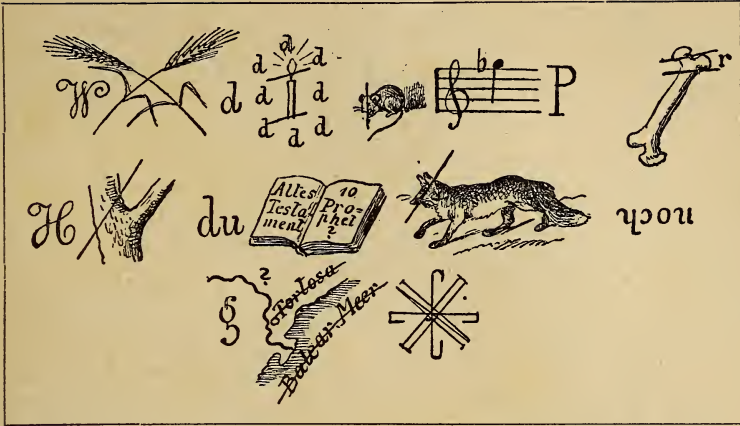 W d d d d d d d d d b P r
H du Altes Testament 10 Prophet ? noch
g ? Tortosa Balear Meer